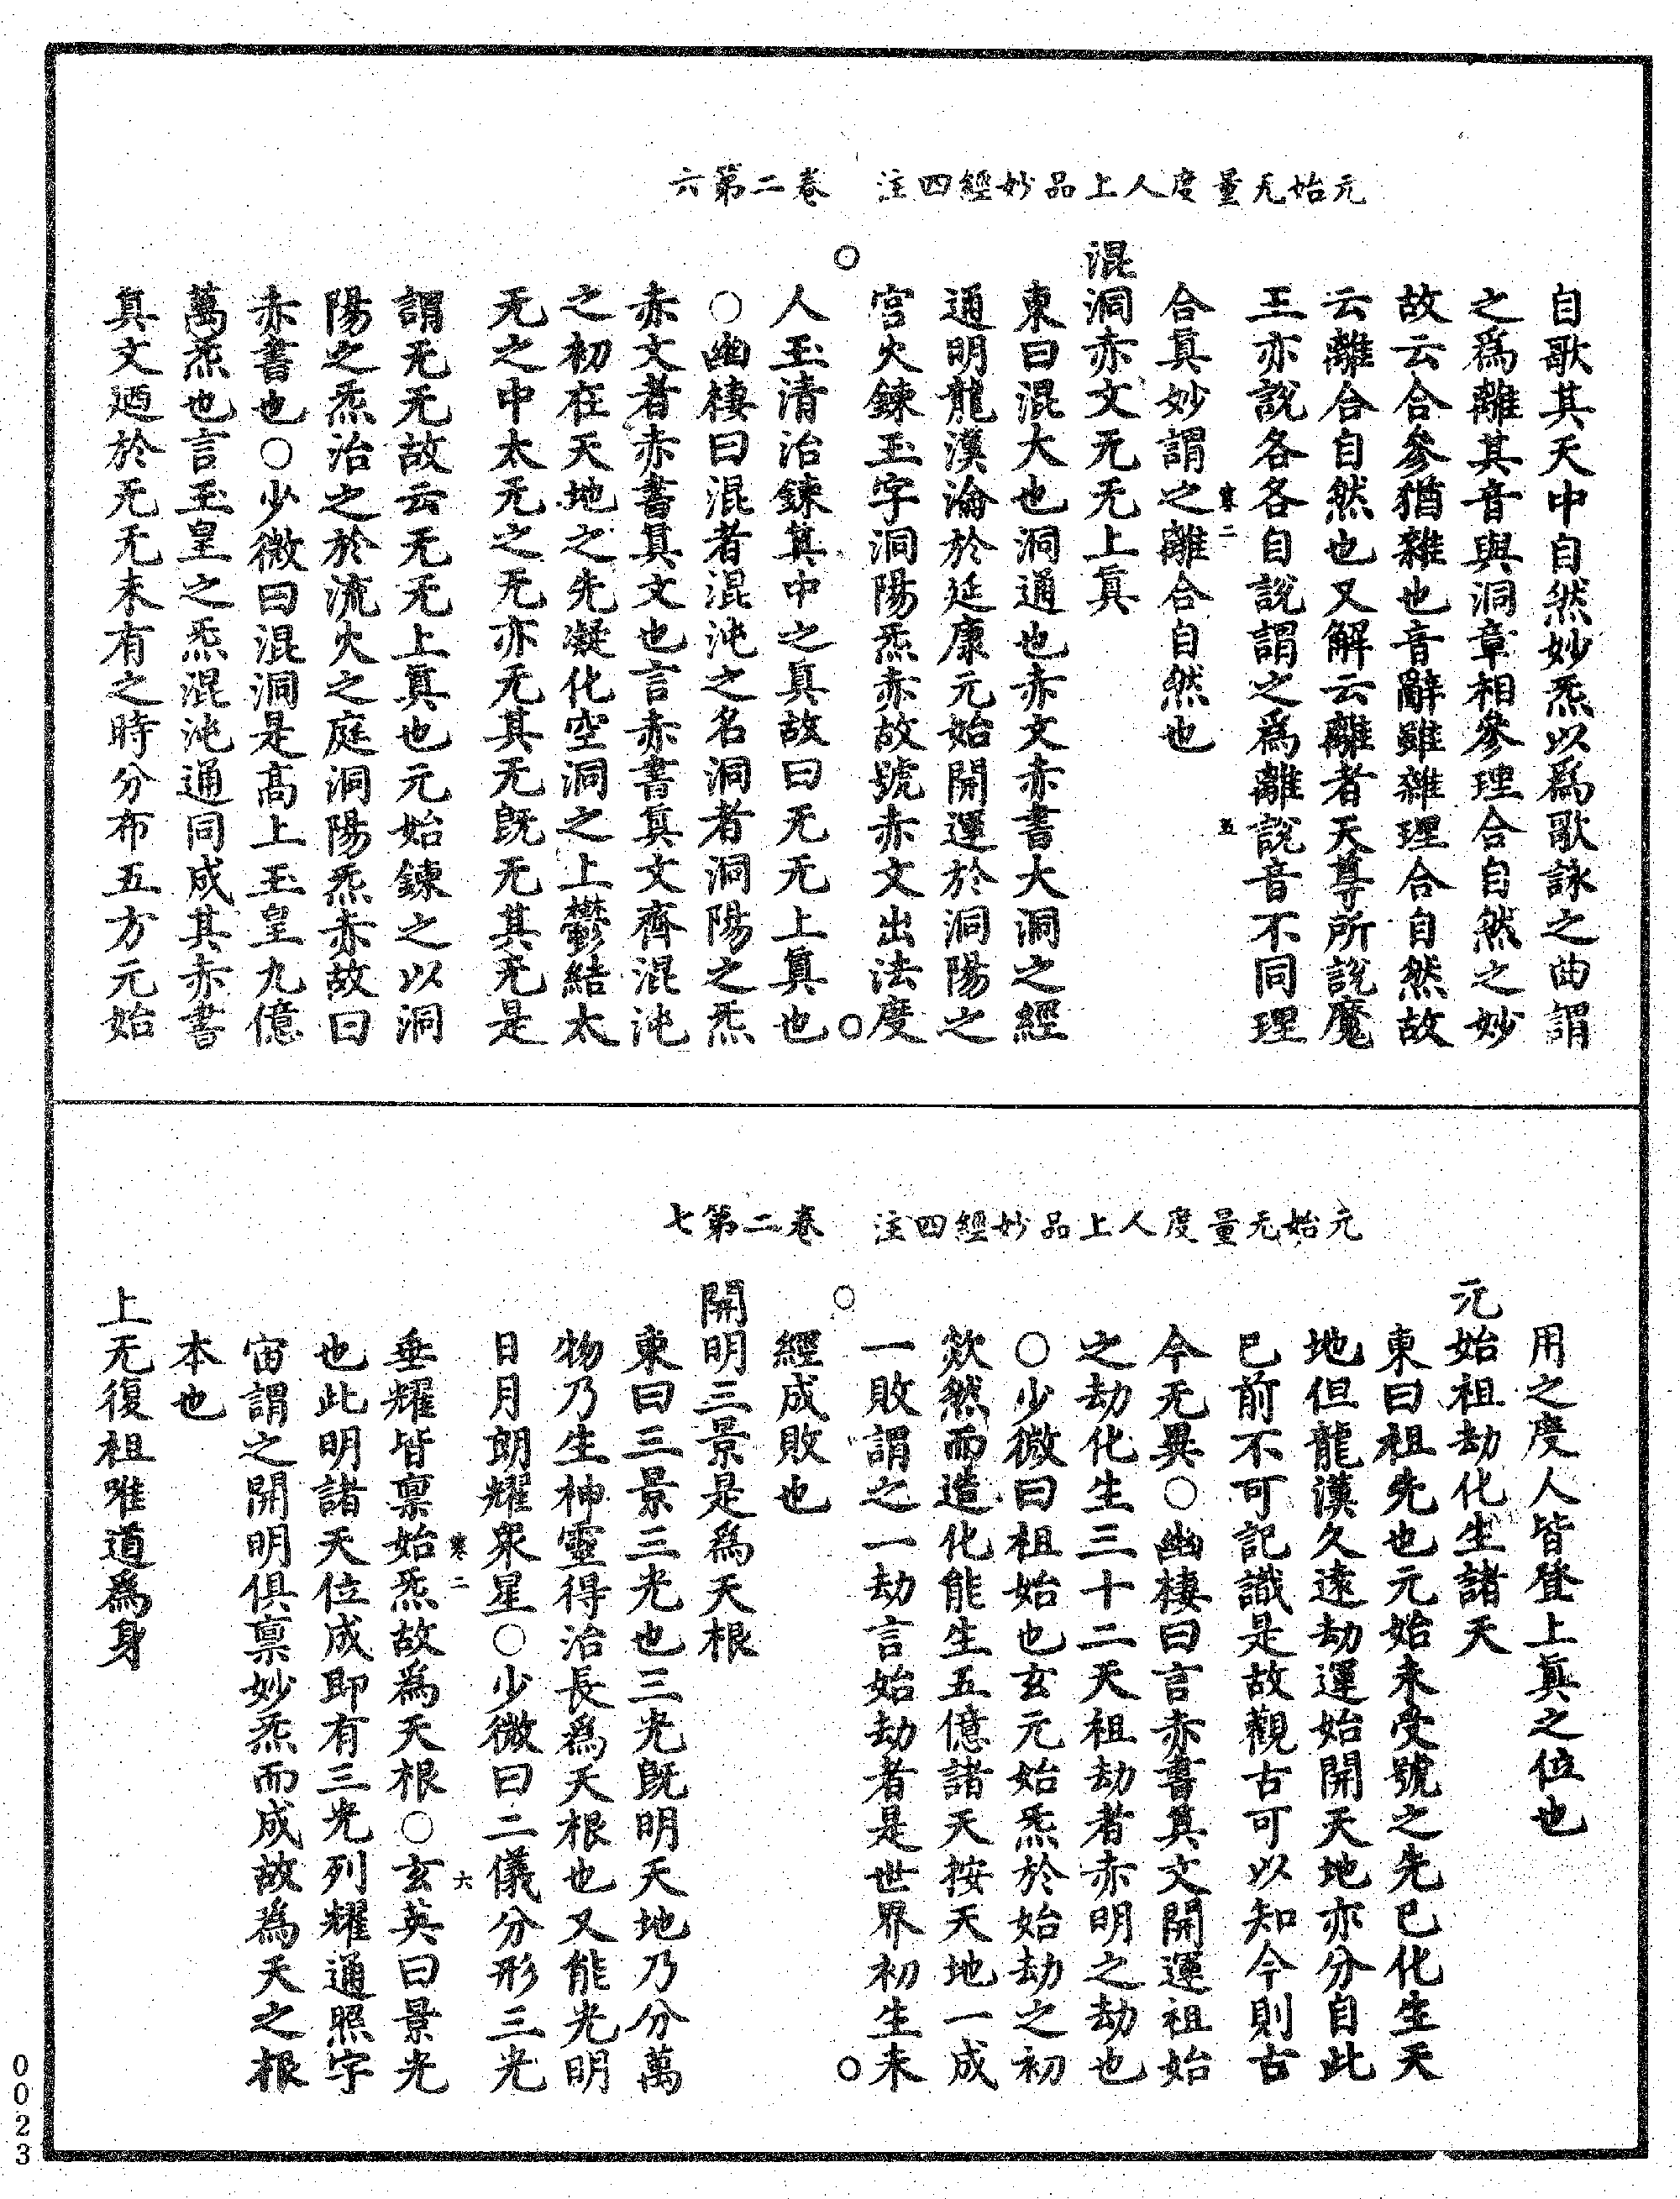 元始无量度人上品妙經四注　卷二第六
自歌其天中自然妙炁以爲歌詠之曲謂
之爲離其音與洞章相參理合自然之妙
故云合參猶雜也音辭雖雜理合自然故
云離合自然也又解云離者天尊所說魔
王亦說各各自說謂之爲離說音不同理
寒二　五
合真妙謂之離合自然也
混洞赤文无无上真
東曰混大也洞通也赤文赤書大洞之經
通明龍漢淪於延康元始開運於洞陽之
宮火鍊玉字洞陽炁赤故號赤文出法度
人玉清治鍊其中之真故曰无无上真也
○幽棲曰混者混沌之名洞者洞陽之炁
赤文者赤書真文也言赤書真文齊混沌
之初在天地之先凝化空洞之上鬱結太
无之中太无之无亦无其无旣无其无是
謂无无故云无无上真也元始鍊之以洞
陽之炁治之於流火之庭洞陽炁赤故曰
赤書也○少微曰混洞是高上玉皇九億
萬炁也言玉皇之炁混沌通同成其赤書
真文迺於无无未有之時分布五方元始
元始无量度人上品妙經四注　卷二第七
用之度人皆登上真之位也
元始祖劫化生諸天
東曰祖先也元始未受號之先已化生天
地但龍漢久遠劫運始開天地亦分自此
已前不可記識是故觀古可以知今則古
今无異○幽棲曰言赤書真文開運祖始
之劫化生三十二天祖劫者赤明之劫也
○少微曰祖始也玄元始炁於始劫之初
欻然而造化能生五億諸天按天地一成
一敗謂之一劫言始劫者是世界初生未
經成敗也
開明三景是爲天根
東曰三景三光也三光旣明天地乃分萬
物乃生神靈得治長爲天根也又能光明
日月朗耀衆星○少微曰二儀分形三光
寒二　六
垂耀皆禀始炁故爲天根○玄英曰景光
也此明諸天位成即有三光列耀通照宇
宙謂之開明俱禀妙炁而成故爲天之根
本也
上无復祖唯道爲身
0023